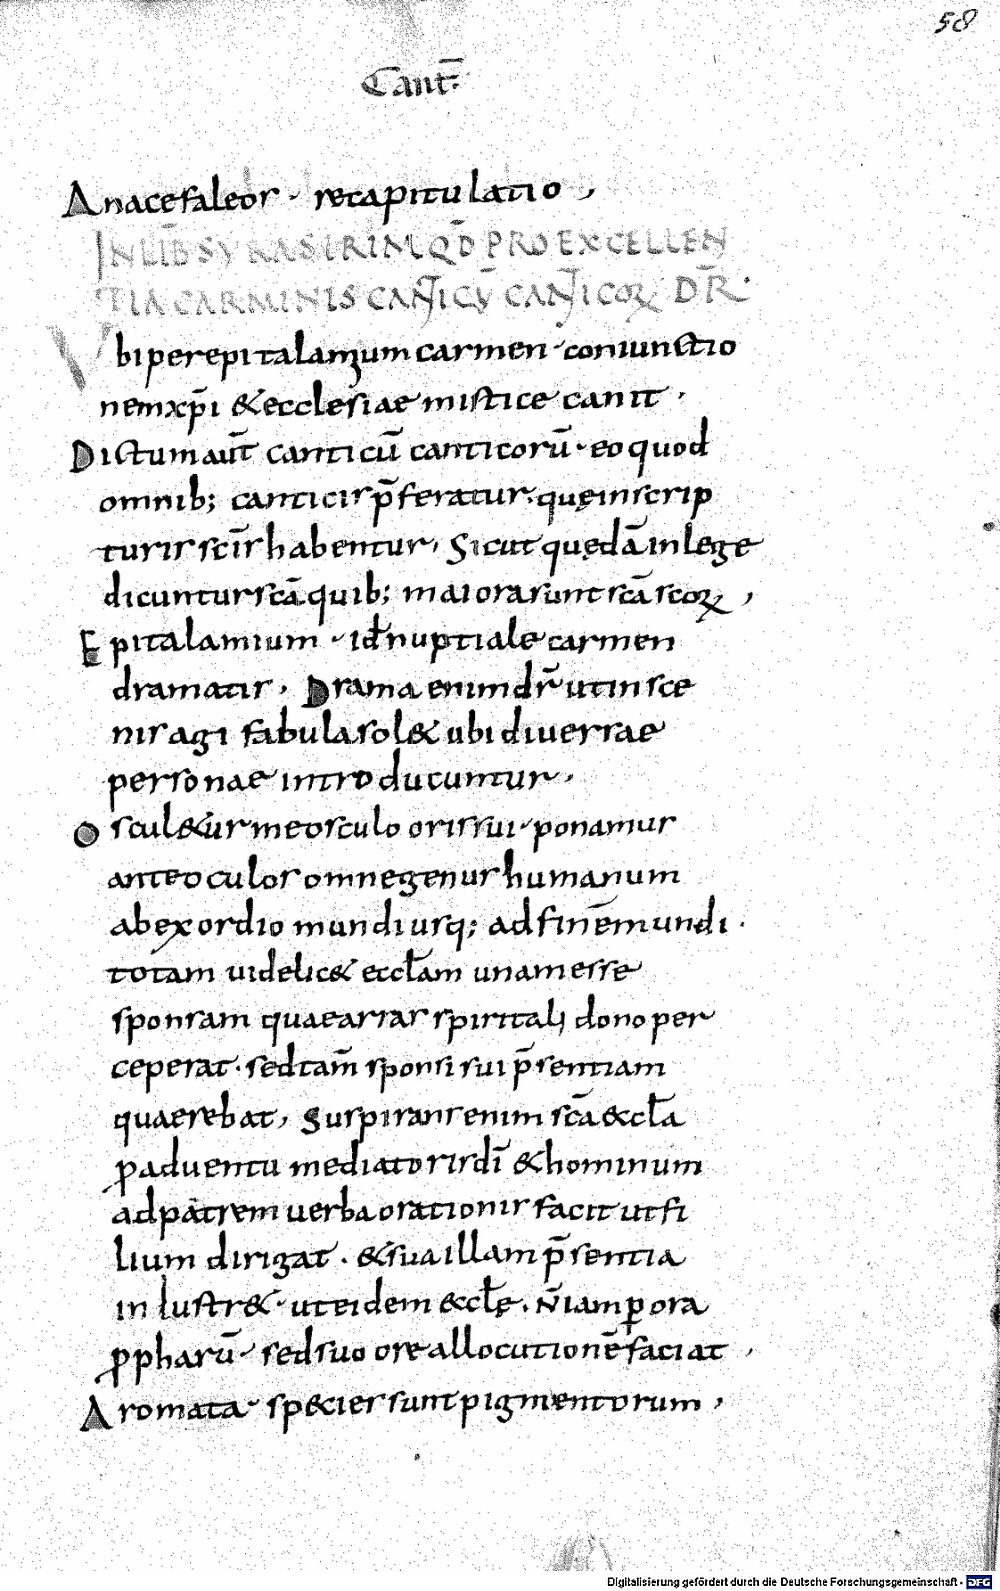 58
Cant̄:
Anacefaleos · recapitulatio ,
IN LIB̄ SYRASIRIM QD̄ PRO EXCELLEN
TIA CARMINIS CANTICŪ CANTICOꝜ DR̄ ·
Vbi per epitalamium carmen · coniunctio
nem xp̄i & ecclesiae mistice canit ·
Dictum aut̄ canticū canticorū · eo quod
omnib; canticis p̄feratur · quę in scrip
turis scīs habentur, Sicut quędā in lege
dicuntur scā quib; maiora sunt scā scoꝝ ,
Epitalamium · id̄ nuptiale carmen
dramatis · Drama enim dr̄ ut in sce
nis agi fabula sol& ubi diuersae
personae introducuntur ·
Oscul&ur me osculo oris sui · ponamus
ante oculos omne genus humanum
ab exordio mundi usq; ad finē mundi ·
totam uidelic& eccl̄am unam esse
sponsam quae arras spiritali dono per
ceperat · sed tam̄ sponsi sui p̄sentiam
quaerebat, Suspirans enim scā &cl̄a
ꝓ aduentu mediatoris dī & hominum
ad patrem uerba orationis facit ut fi
lium dirigat · & sua illam p̄sentia
inlustr& · ut eidem &cl̄ę · n̄ iam ꝑ ora
ꝓpharū · sed suo ore allocutionē faciat ,
Aromata · species sunt pigmentorum ,
Digitalisierung gefördert durch die Deutsche Forschungsgemeinschaft - DFG